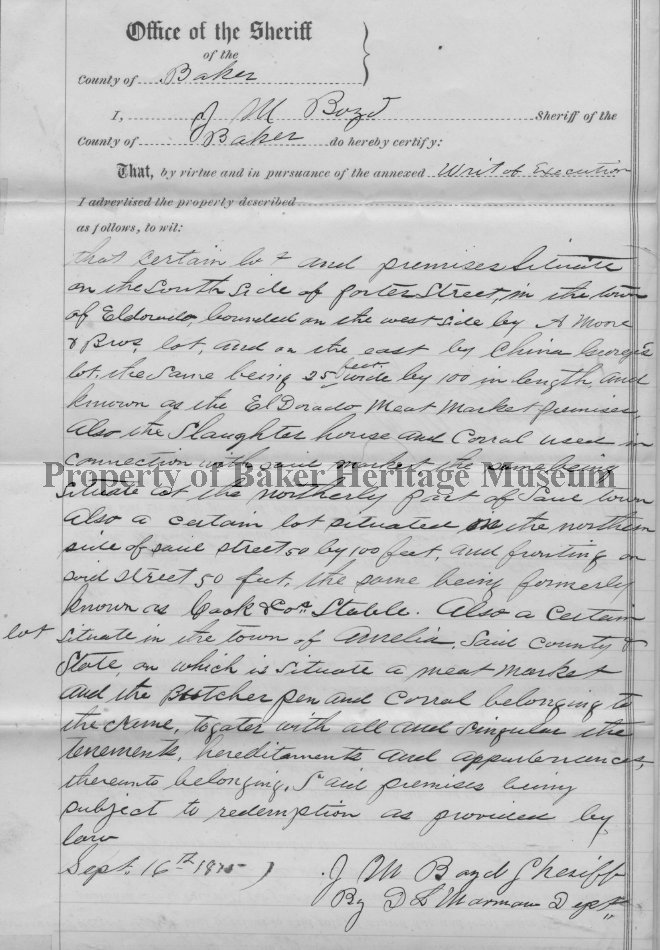 Office of the Sheriff
of the
County of Baker
I, J M Boyd Sheriff of the
County of Baker do hereby certify:
That, by virtue and in pursuance of the annexed Writ of Execution
I advertised the property described
as follows, to wit:
that certain lot and premises Situate
on the South Side of porter Street, in the town
of Eldorado, bounded on the west side by A Moore
& Bros, lot, and on the east by China George's
lot, the Same being 25 feet wide by 100 in length, and
known as the ElDorado Meat Market premises,
Also the Slaughter house and Corral used in
connection with said market the same being
Property of Baker Heritage Museum
Situate at the northerly part of Said town
Also a certain lot situated on the northern
side of said street 50 by 100 feet, and fronting on
said street 50 feet, the same being formerly
known as Cook & Cos Stable. Also a Certain
lot Situate in the town of Amelia, Said County &
State, on which is Situate a meat market
and the Butcher pen and Corral belonging to
the same, togater with all and Singular the
tenements, hereditaments and appurtenances,
thereunto belonging, Said premises being
subject to redemption as provided by
law
Sept. 16th 1875 )
J M Boyd Sheriff
By D L Marman Dept